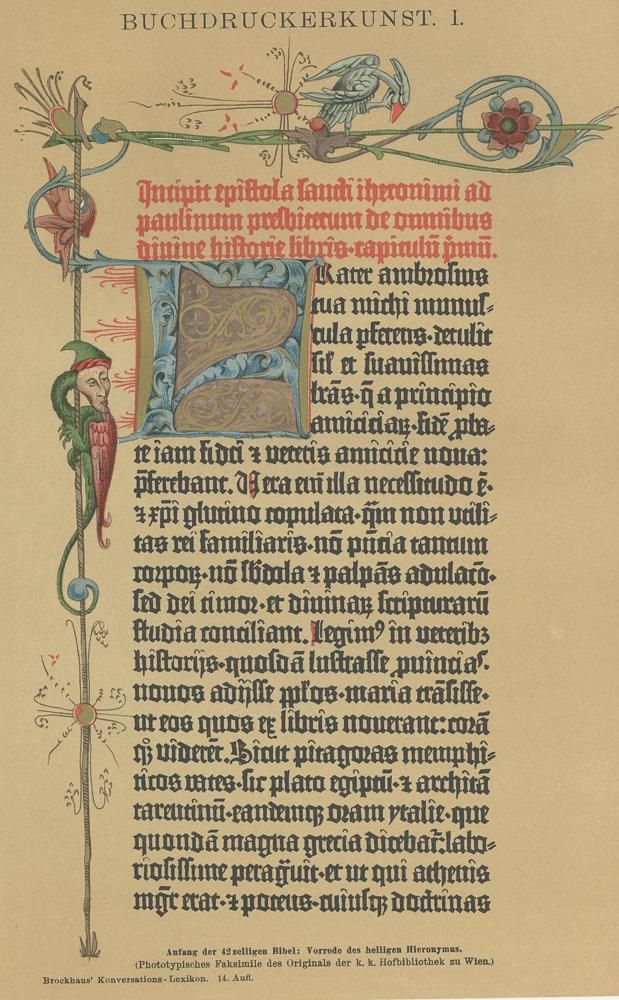 BUCHDRUCKERKUNST. I.
Incipit epistola sancti iheronimi ad
paulinum presbiterum de omnibus
divine historie libris·capitulū p̄mū.
Frater ambrosius
tua michi munus-
cula pferens·detulit
sił et suavissimas
lrās·q̄ a principio
amiciciaꝝ·fidē pba-
te iam fidei ⁊ veteris amicicie nova:
p̄ferebant. Vera eni illa necessitudo ē·
⁊ xp̄i glutino copulata·q̄m non utili-
tas rei familiaris·nō pn̄cia tantum
corpoꝝ·nō sb̄dola ⁊ palpās adulacō·
sed dei timor·et divinaꝝ scripturarū
studia conciliant. Legimꝰ in veteribꝫ
historijs·quosdā lustrasse puinciaˢ·
novos adijsse pp̄los·maria trāsisse·
ut eos quos ex libris noverant:corā
qꝫ viderēt. Sicut pitagoras memphi-
ticos vates·sic plato egiptū·⁊ architā
tarentinū·eandemqꝫ oram ytalie·que
quondā magna grecia dicebat̄:labo-
riosissime peragᷓvit·et ut qui athenis
mgr̄ erat·⁊ potens·cuiusqꝫ doctrinas
Anfang der 42zeiligen Bibel: Vorrede des heiligen Hieronymus.
(Phototypisches Faksimile des Originals der k. k. Hofbibliothek zu Wien.)
Brockhaus' Konversations-Lexikon. 14. Aufl.